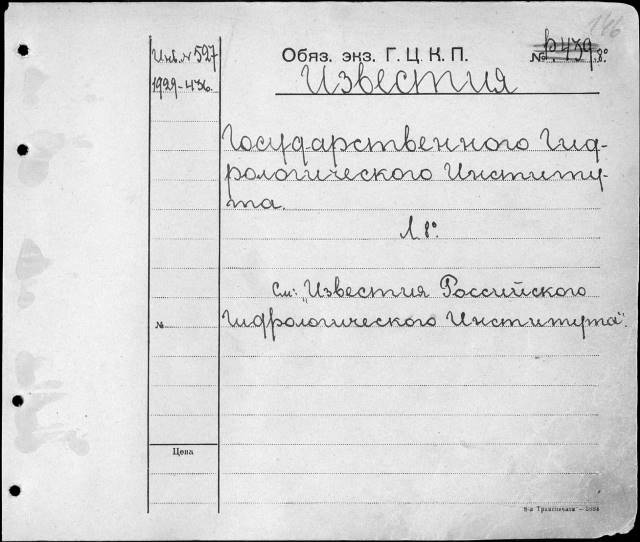 146
Инв. № 527
1929-436.
Обяз. экз. Г. Ц. К. П.
№ Р.439.8º
Известия
Государственного Гид-
рологического Институ-
та.
Л 8º.
См: "Известия Российского
Гидрологического Института".
№
Цена
8-я Транспечати — 3884